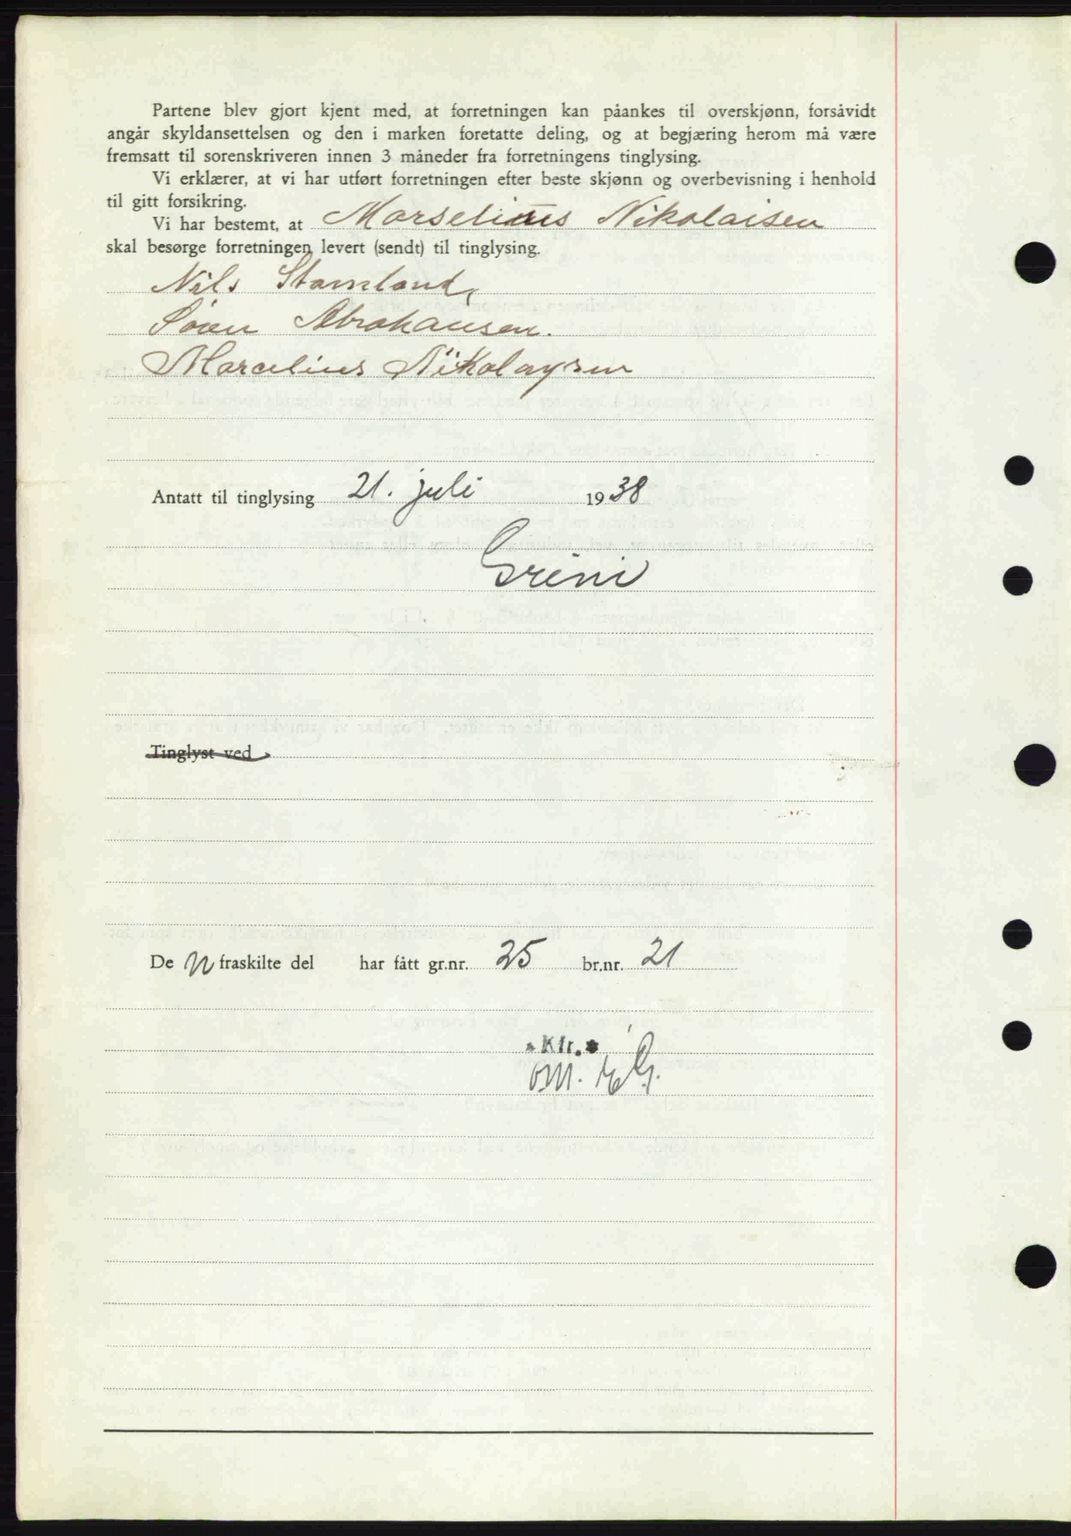 Partene blev gjort kjent med, at forretningen kan påankes til overskjønn, forsåvidt
angår skyldansettelsen og den i marken foretatte deling, og at begjæring herom må være
fremsatt til sorenskriveren innen 3 måneder fra forretningens tinglysing.
Vi erklærer, at vi har utført forretningen efter beste skjønn og overbevisning i henhold
til gitt forsikring.
Vi har bestemt, at Marselius Nikolaisen
skal besørge forretningen levert (sendt) til tinglysing.
Nils Stamland,
Søren Abrahansen.
Marcelius Nikolaysen
Antatt til tinglysing 21. juli 1938
Greni
Tinglyst ved
De n fraskilte del har fått gr.nr. 25 br.nr. 21
Kfr.